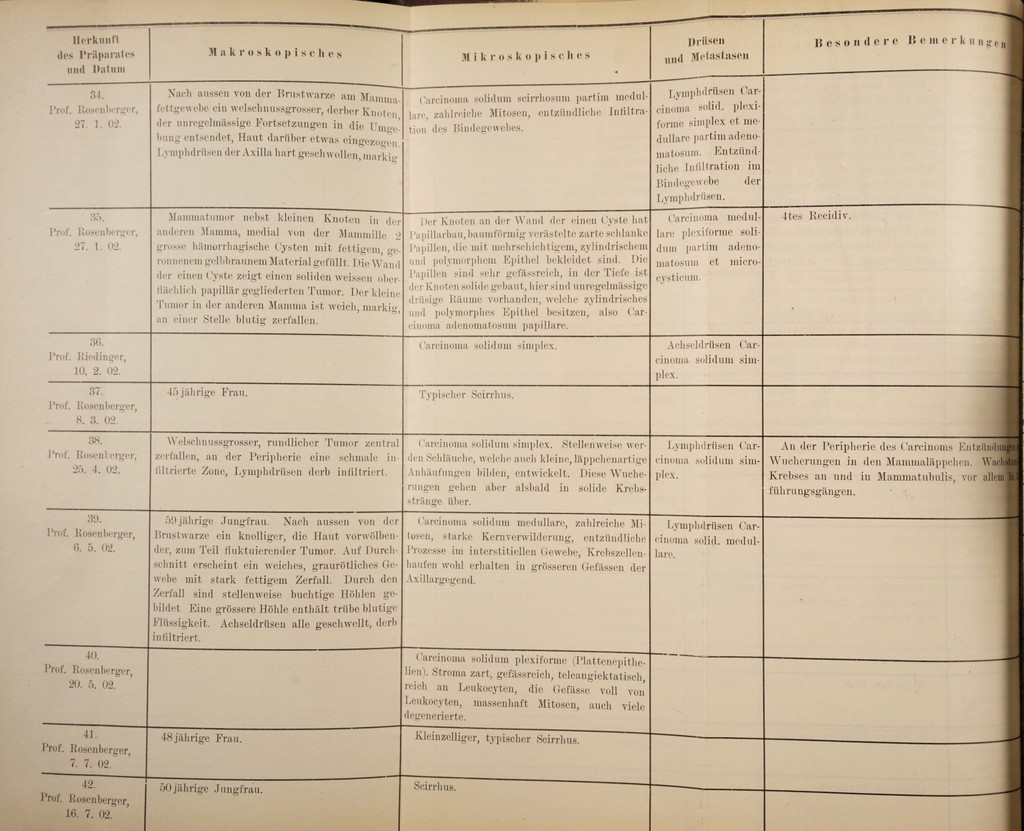 Herkunft
des Präparates
und Datum
Makroskopisches
Mikroskopisches
Drüsen
und Metastasen
Besondere Bemerkungen
34.
Prof. Rosenberger,
27. 1. 02.
Nach aussen von der Brustwarze am Mamma-
fettgewebe ein welschnussgrosser, derber Knoten,
der unregelmässige Fortsetzungen in die Umge-
bung entsendet, Haut darüber etwas eingezogen.
Lymphdrüsen der Axilla hart geschwollen, markig
Carcinoma solidum scirrhosum partim medul-
lare, zahlreiche Mitosen, entzündliche Infiltra-
tion des Bindegewebes.
Lymphdrüsen Car-
cinoma solid. plexi-
forme simplex et me-
dullare partim adeno-
matosum. Entzünd-
liche Infiltration im
Bindegewebe der
Lymphdrüsen.
35.
Prof. Rosenberger,
27. 1. 02.
Mammatumor nebst kleinen Knoten in der
anderen Mamma, medial von der Mammille 2
grosse hämorrhagische Cysten mit fettigem, ge-
ronnenem gelbbraunem Material gefüllt. Die Wand
der einen Cyste zeigt einen soliden weissen ober-
flächlich papillär gegliederten Tumor. Der kleine
Tumor in der anderen Mamma ist weich, markig,
an einer Stelle blutig zerfallen.
Der Knoten an der Wand der einen Cyste hat
Papillarbau, baumförmig verästelte zarte schlanke
Papillen, die mit mehrschichtigem, zylindrischem
und polymorphem Epithel bekleidet sind. Die
Papillen sind sehr gefässreich, in der Tiefe ist
der Knoten solide gebaut, hier sind unregelmässige
drüsige Räume vorhanden, welche zylindrisches
und polymorphes Epithel besitzen, also Car-
cinoma adenomatosum papillare.
Carcinoma medul-
lare plexiforme soli-
dum partim adeno-
matosum et micro-
cysticum.
4tes Recidiv.
36.
Prof. Riedinger,
10. 2. 02.
Carcinoma solidum simplex.
Achseldrüsen Car-
cinoma solidum sim-
plex.
37.
Prof. Rosenberger,
8. 3. 02.
45 jährige Frau.
Typischer Scirrhus.
38.
Prof. Rosenberger,
25. 4. 02.
Welschnussgrosser, rundlicher Tumor zentral
zerfallen, an der Peripherie eine schmale in-
filtrierte Zone, Lymphdrüsen derb infiltriert.
Carcinoma solidum simplex. Stellenweise wer-
den Schläuche, welche auch kleine, läppchenartige
Anhäufungen bilden, entwickelt. Diese Wuche-
rungen gehen aber alsbald in solide Krebs-
stränge über.
Lymphdrüsen Car-
cinoma solidum sim-
plex.
An der Peripherie des Carcinoms Entzündung
Wucherungen in den Mammaläppchen.
Krebses an und in Mammatubulis, vor allem
führungsgängen.
39.
Prof. Rosenberger,
6. 5. 02.
59 jährige Jungfrau. Nach aussen von der
Brustwarze ein knolliger, die Haut vorwölben-
der, zum Teil fluktuierender Tumor. Auf Durch-
schnitt erscheint ein weiches, graurötliches Ge-
webe mit stark fettigem Zerfall. Durch den
Zerfall sind stellenweise buchtige Höhlen ge-
bildet Eine grössere Höhle enthält trübe blutige
Flüssigkeit. Achseldrüsen alle geschwellt, derb
infiltriert.
Carcinoma solidum medullare, zahlreiche Mi-
tosen, starke Kernverwilderung, entzündliche
Prozesse im interstitiellen Gewebe, Krebszellen-
haufen wohl erhalten in grösseren Gefässen der
Axillargegend.
Lymphdrüsen Car-
cinoma solid. medul-
lare.
40.
Prof. Rosenberger,
20. 5. 02.
Carcinoma solidum plexiforme (Plattenepithe-
lien). Stroma zart, gefässreich, teleangiektatisch,
reich an Leukocyten, die Gefässe voll von
Leukocyten, massenhaft Mitosen, auch viele
degenerierte.
41.
Prof. Rosenberger,
7. 7. 02.
48 jährige Frau.
Kleinzelliger, typischer Scirrhus.
42.
Prof. Rosenberger,
16. 7. 02.
50 jährige Jungfrau.
Scirrhus.